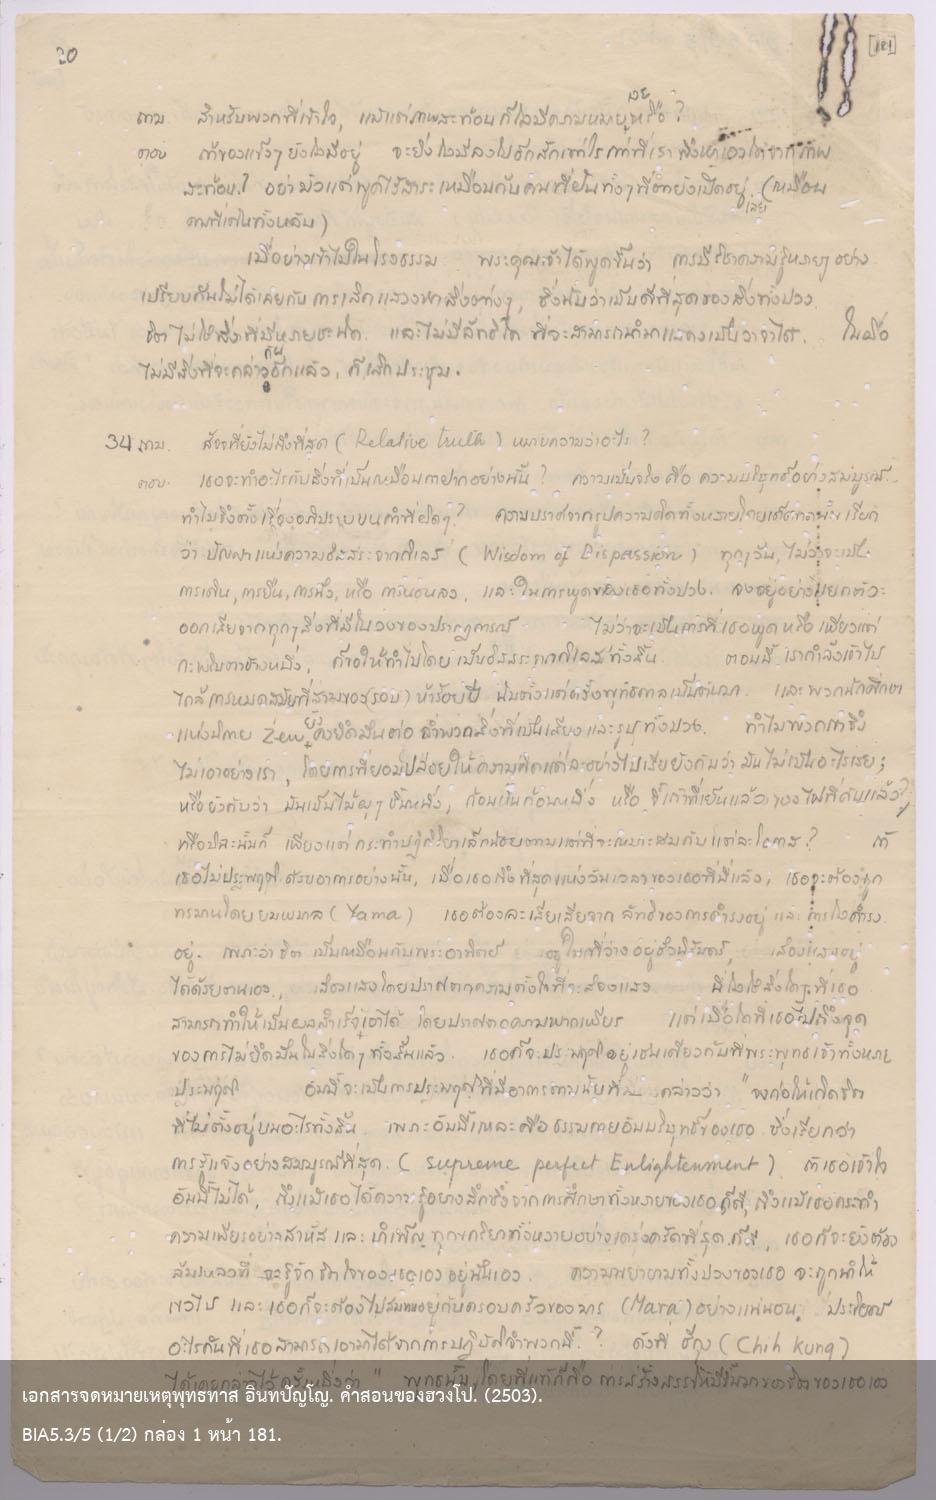 20
[181]
ถาม สำหรับพวกที่เข้าใจ, แม้แต่ภาพสะท้อน ก็ไม่มีความหมายเลย หรือ ?
ตอบ ถ้าของแข็งๆ ยังไม่มีอยู่ จะยิ่งไม่มีลงไปอีกสักเท่าไร
สะท้อน ? อย่ามัวแต่พูดไร้สาระเหมือนกับคนที่ฝันทั้งๆที่ตายังเปิดอยู่ (เหมือน
คนที่
เมื่อย่างเข้าไปในโรงธรรม พระคุณเจ้าได้พูดขึ้นว่า การมีวิชาความรู้หลายๆอย่าง
เปรียบกันไม่ได้เลยกับการเลิกแสวงหาสิ่งต่างๆ, ซึ่งนับว่าเป็นดีที่สุดของสิ่งทั้งปวง.
จิตไม่ใช่สิ่งที่มีหลายชนิด. และไม่มีลัทธิใด ที่จะสามารถนำมาแสดงเป็นวาจาได้. ในเมื่อ
ไม่มีสิ่งที่จะกล่าวกันอีกแล้ว, ก็เลิกประชุม.
34 ถาม. สัจจที่ยังไม่ถึงที่สุด (Relative truth) หมายความว่าอะไร ?
ตอบ. เธอจะทำอะไรกับสิ่งที่เป็นเหมือนกาฝากอย่างนั้น ? ความเป็นจริงคือ ความบริสุทธิ์อย่างสมบูรณ์.
ทำไมจึงตั้งเรื่องอภิปรายบนคำที่ผิดๆ ? ความปราศจากรูปความคิดทั้งหลายโดยเด็ดขาดนั้น เรียก
ว่า ปัญญาแห่งความอิสสระจากกิเลส (Wisdom of Dispassion) ทุกๆวัน, ไม่ว่าจะเป็น
การเดิน, การยืน, การนั่ง, หรือ การนอนลง, และในการพูดของเธอทั้งปวง. จงอยู่อย่างแยกตัว
ออกเสียจากทุกๆสิ่งที่มีในวงของปรากฏการณ์ ไม่ว่าจะเป็นการที่เธอพูด หรือ เพียงแต่
กะพริบตาข้างหนึ่ง, ก็ขอให้ทำไปโดยเป็นอิสสระจากกิเลสทั้งสิ้น ตอนนี้ เรากำลังเข้าไป
ใกล้การหมดสมัยที่สามของ(รอบ)ห้าร้อยปี นับตั้งแต่ครั้งพุทธกาลเป็นต้นมา. และพวกนักศึกษา
แห่งนิกาย Zen ยังคงยึดมั่นต่อ สิ่งที่เป็นเสียงและรูปทั้งปวง. ทำไมพวกเขาจึง
ไม่เอาอย่างเรา, โดยการที่ยอมปล่อยให้ความคิดแต่ละอย่างไปเรียบกับว่ามันไม่เป็นอะไรเลย;
หรือยังกับว่า มันเป็นไม้ผุๆชิ้นหนึ่ง, ก้อนหินก้อนหนึ่ง หรือ ขี้เถ้าที่เย็นแล้วของไฟที่ดับแล้ว?
หรือมิฉะนั้นก็ เพียงแต่กระทำปฏิกิริยาเล็กน้อยตามแต่ที่จะเหมาะสมกับแต่ละโอกาส ? ถ้า
เธอไม่ประพฤติด้วยอาการอย่างนั้น, เมื่อเธอถึงที่สุดแห่งวันเวลาของเธอที่นี่แล้ว, เธอจะต้องถูก
ทรมานโดยยมพบาล (Yama) เธอต้องละเสียเสียจาก ลัทธิของการดำรงอยู่ และ การไม่ดำรง
อยู่. เพราะว่าจิต เป็นเหมือนกับพระอาทิตย์ อยู่ในที่ว่างอยู่ชั่วนิรันดร์, ส่องแสงอยู่
ได้ด้วยตนเอง, ส่องแสงโดยปราศจากความตั้งใจที่จะส่องแสง นี่ไม่ใช่สิ่งใดๆที่เธอ
สามารถทำให้เป็นผลสำเร็จเอาได้ โดยปราศจากความพากเพียร แต่เมื่อใดที่เธอไปถึงจุด
ของการไม่ยึดมั่นในสิ่งใดๆทั้งสิ้นแล้ว. เธอก็จะประพฤติอยู่เช่นเดียวกับที่พระพุทธเจ้าทั้งหลาย
ประพฤติ อันนี้จะเป็นการประพฤติที่มีอาการตามนัยที่ กล่าวว่า "จงก่อให้เกิดจิต
ที่ไม่ตั้งอยู่บนอะไรทั้งสิ้น. เพราะอันนี้แหละคือ ธรรมกายอันบริสุทธิ์ของเธอ ซึ่งเรียกว่า
การรู้แจ้งอย่างสมบูรณ์ที่สุด. (Supreme perfect Enlightenment) ถ้าเธอเข้าใจ
อันนี้ไม่ได้, ถึงแม้เธอได้ความรู้อย่างลึกซึ้งจากการศึกษาทั้งหลายของเธอก็ดี, ถึงแม้เธอกระทำ
ความเพียรอย่างสาหัส และ บำเพ็ญ ทุกขกิริยาทั้งหลายอย่างเคร่งครัดที่สุด ก็ดี, เธอก็จะยังต้อง
ล้มเหลวที่ จะรู้จักจิตใจของเธอเองอยู่นั่นเอง. ความพยายามทั้งปวงของเธอ จะถูกทำให้
เขวไป และ เธอก็จะต้องไปสมทบอยู่กับครอบครัวของมาร (Mara) อย่างแน่นอน ประโยชน์
อะไรกันที่เธอสามารถเอามาได้จากการปฏิบัติจำพวกนี้ ? ดังที่ ชี่กุง (Chih Kung)
ได้เคยกล่าวไว้ครั้งหนึ่งว่า "พุทธะนั้น, โดยที่แท้ก็คือ การสร้างสรรให้มีขึ้นมาของจิตของเธอเอง
เอกสารจดหมายเหตุพุทธทาส อินทปัญโญ. คำสอนของฮวงโป. (2503).
BIA5.3/5 (1/2) กล่อง 1 หน้า 181.